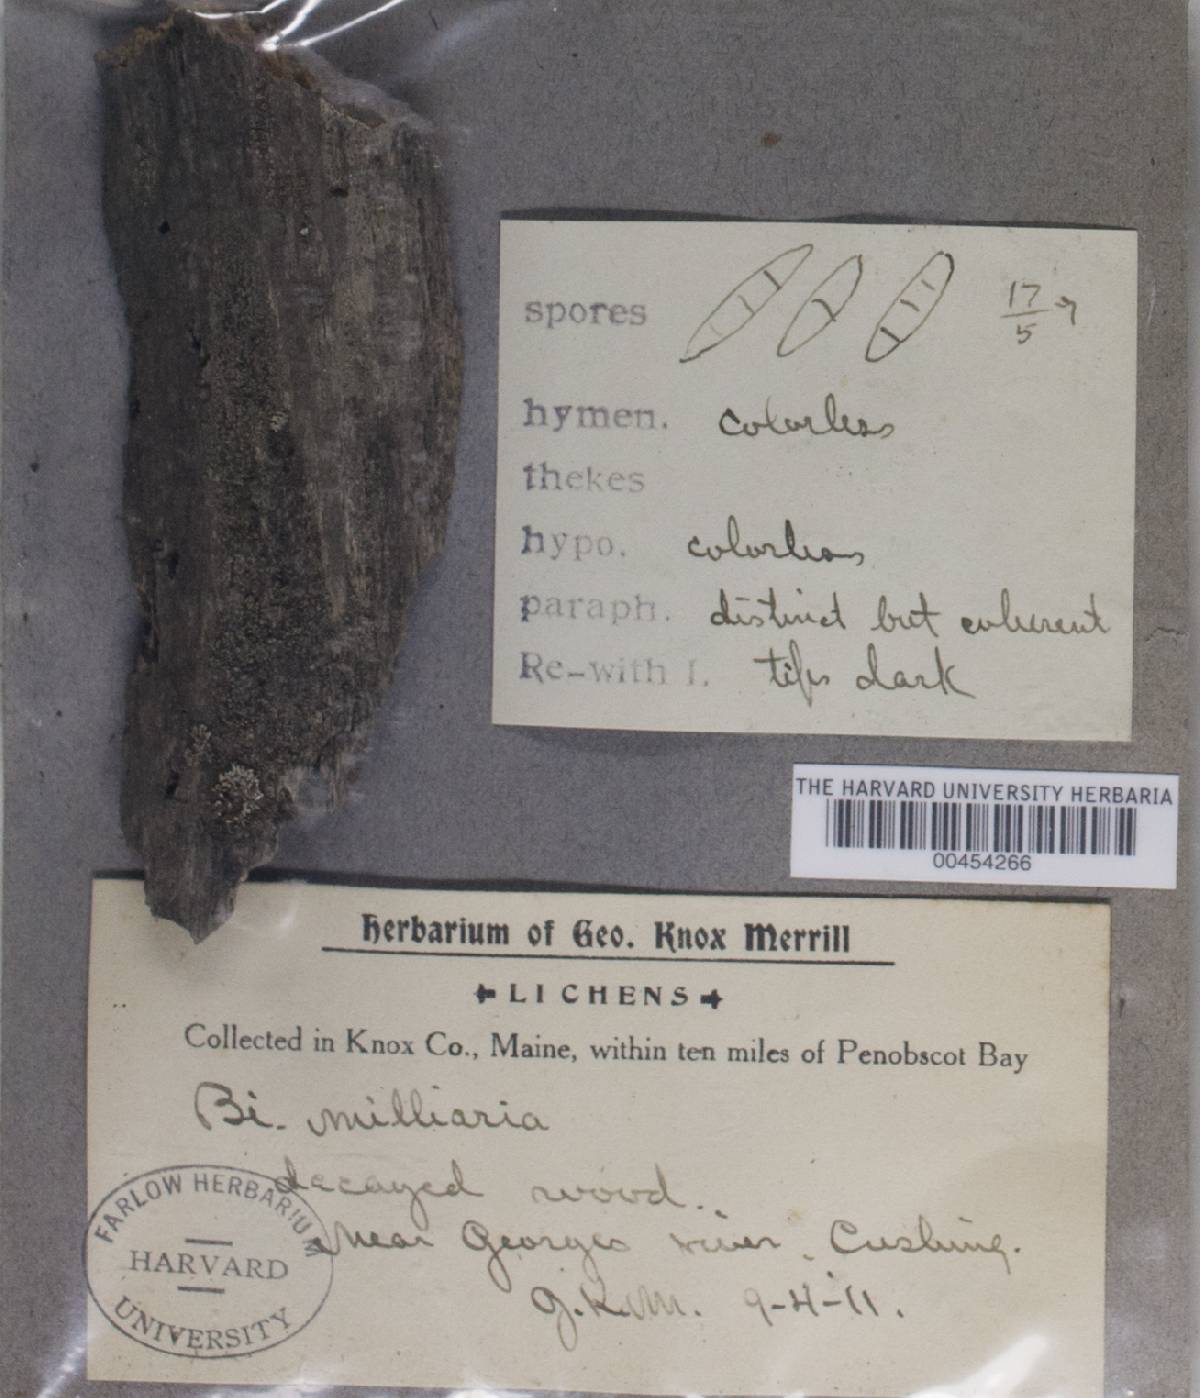 spores 17/5
hymen. colorless
thekes
hypo. colorless
paraph. distinct but coherent
Re-with I. tips dark
THE HARVARD UNIVERSITY HERBARIA
00454266
Herbarium of Geo. Knox Merrill
LICHENS
Collected in Knox Co., Maine, within ten miles of Penobscot Bay
Bi. milliaria
decayed wood.
Near Georges river. Cushing.
G.K.M. 9-4-11.
FARLOW HERBARIUM
HARVARD
UNIVERSITY